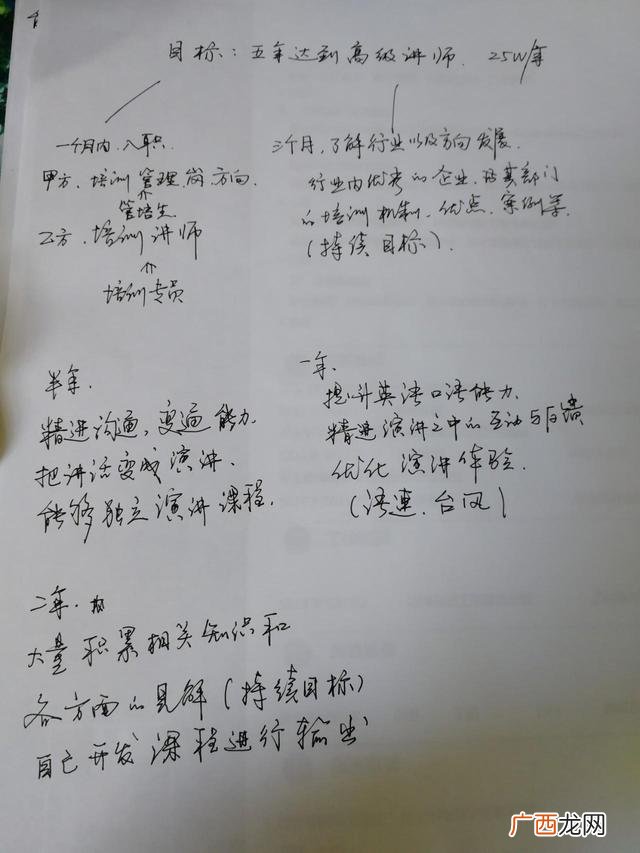 目标：五年达到高级讲师. 25W/年
一个月内.入职.
甲方.培训管理岗方向.
管培生
乙方.培训讲师
培训专员
三个月,了解行业以及方向发展.
行业内优秀的企业,及其部门
的培训机制.优点.案例等.
(持续目标).
半年.
精进沟通,变通能力.
把讲话变成演讲.
能够独立演讲课程.
一年.
提升英语口语能力.
精进演讲之中的互动与反馈
优化演讲体验.
(语速.台风)
二年.
大量积累相关知识和
各方面的见解(持续目标)
自己开发课程进行输出
广西龙网